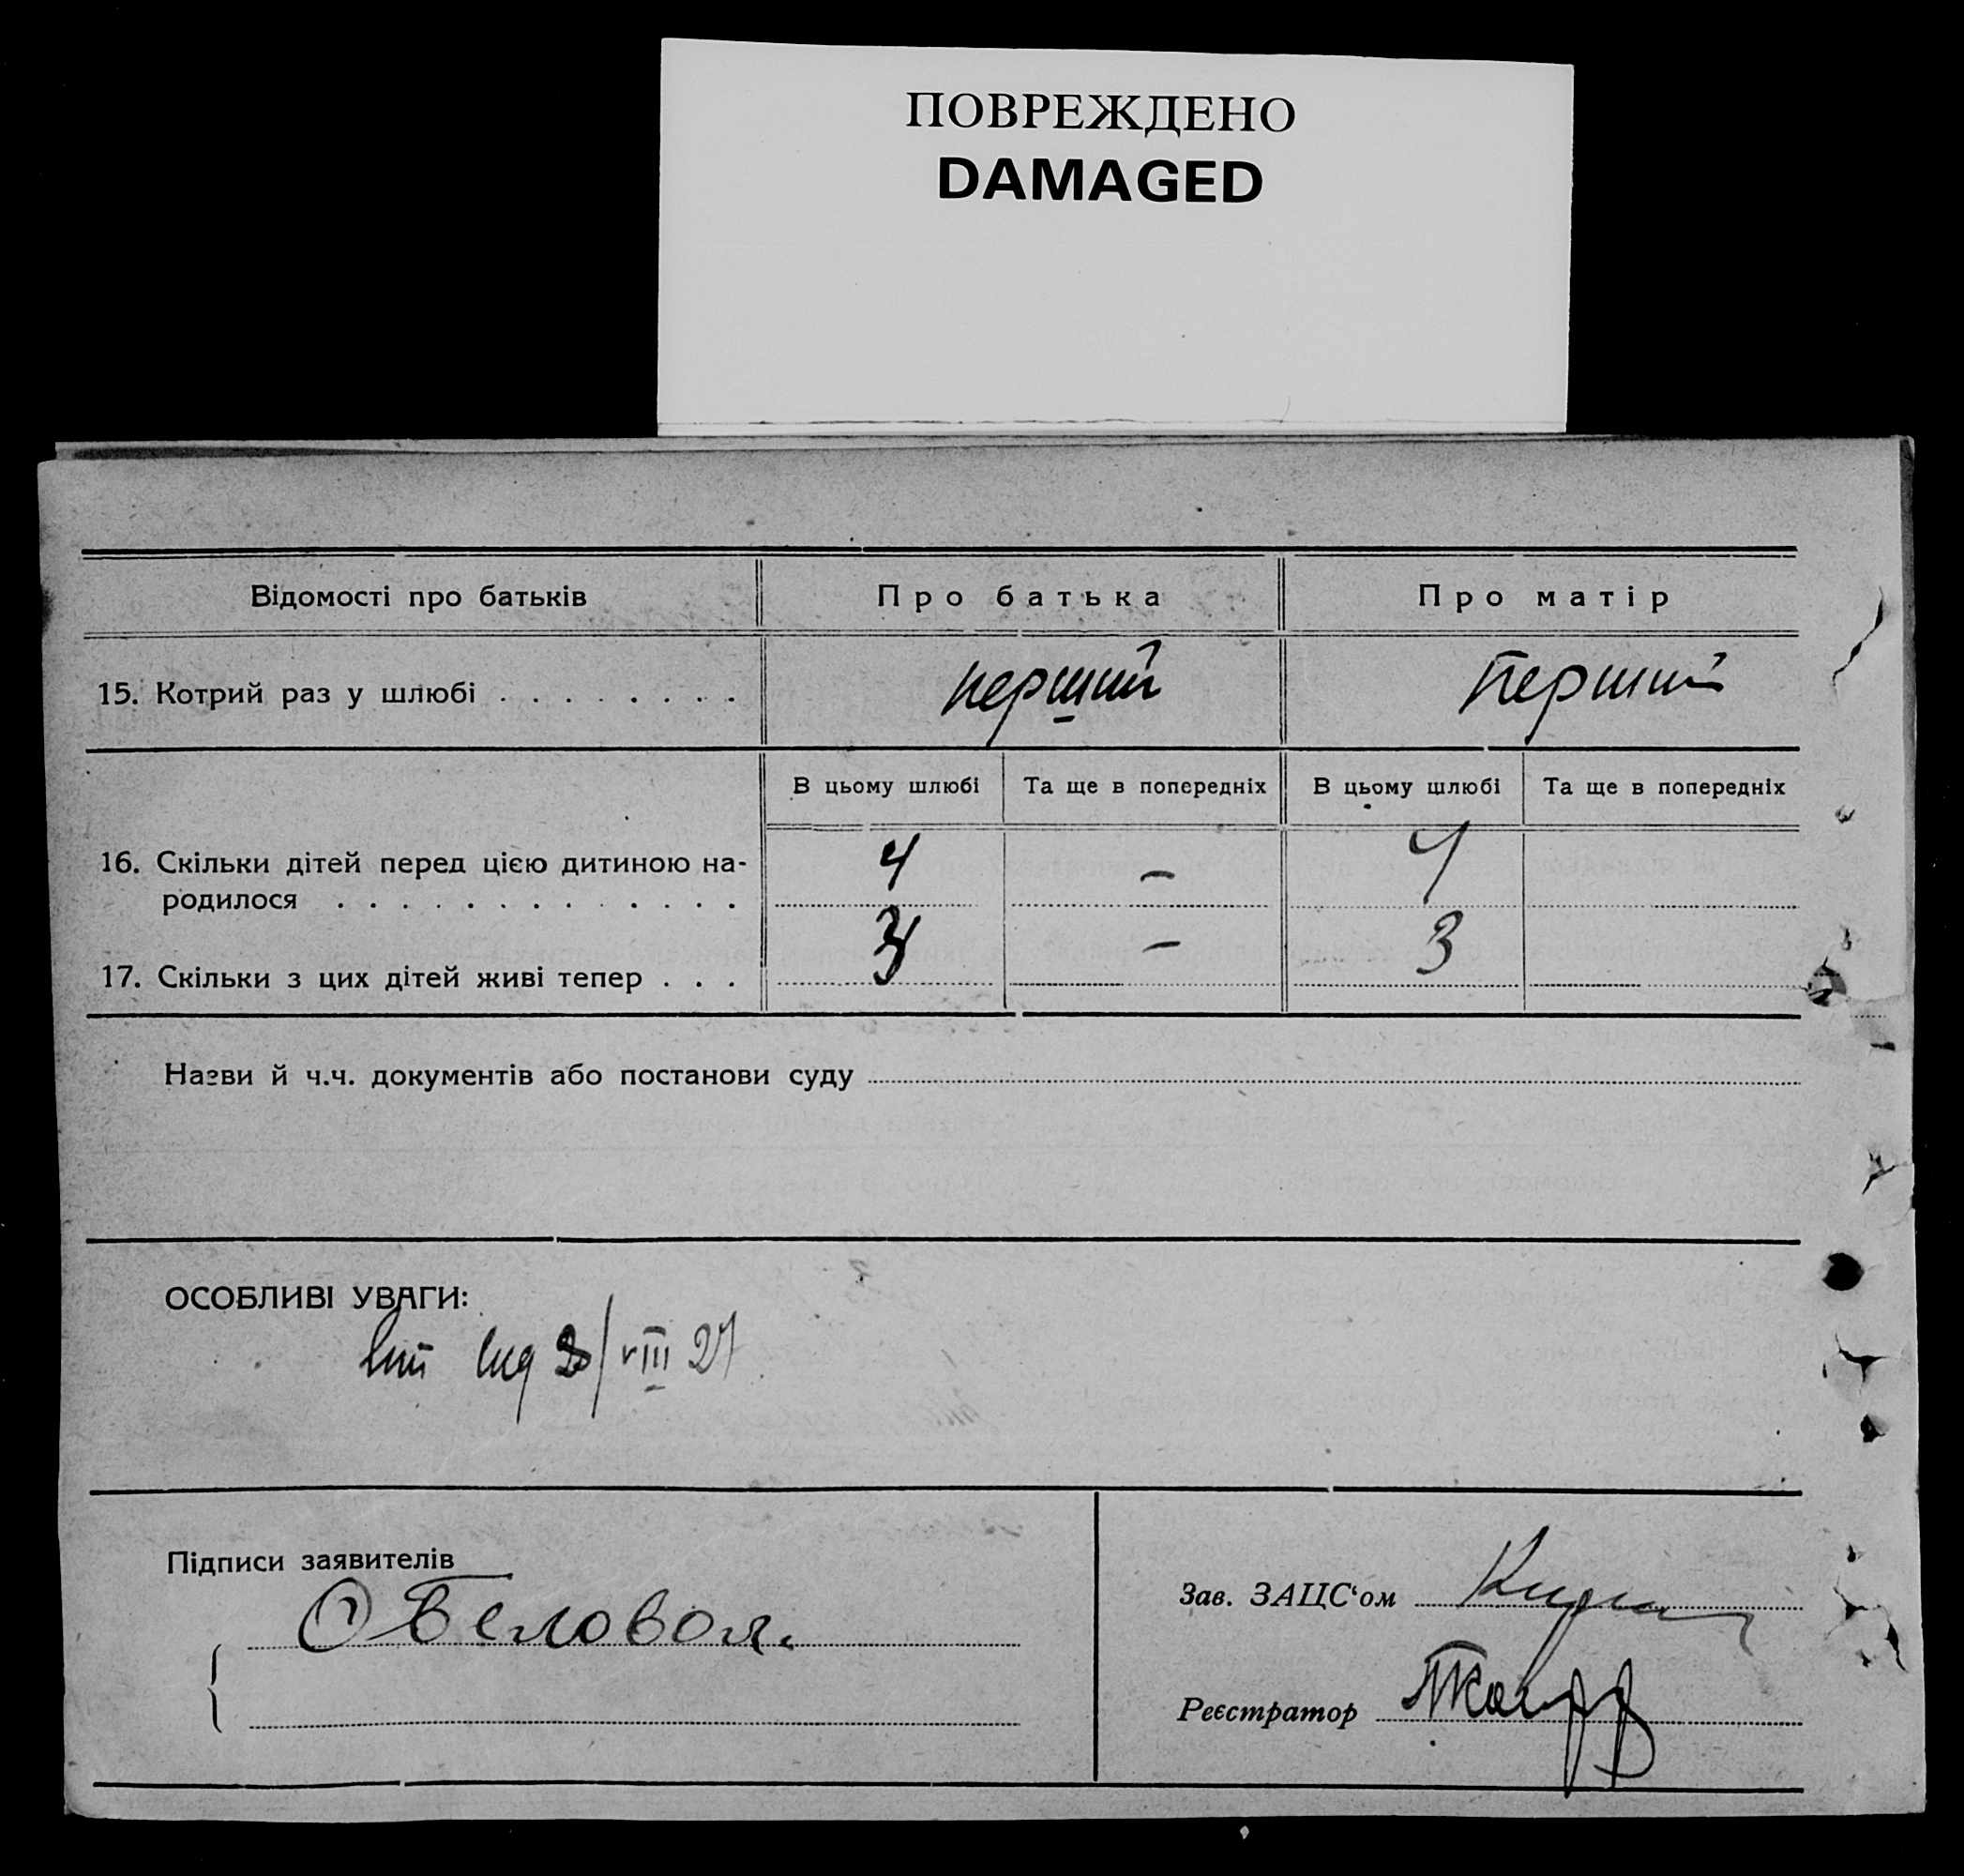 ПОВРЕЖДЕНО
DAMAGED
Відомості про батьків Про батька Про матір
15. Котрий раз у шлюбі . . . . . . . . перший Перший
В цьому шлюбі Та ще в попередніх В цьому шлюбі Та ще в попередніх
16. Скільки дітей перед цією дитиною на-
родилося . . . . . . . . . . . . . . 4 – 4
17. Скільки з цих дітей живі тепер . . . 3 – 3
Назви й ч.ч. документів або постанови суду
ОСОБЛИВІ УВАГИ:
VIII 27
Підписи заявителів
Зав. ЗАЦС‘ом
Беловол.
Реєстратор